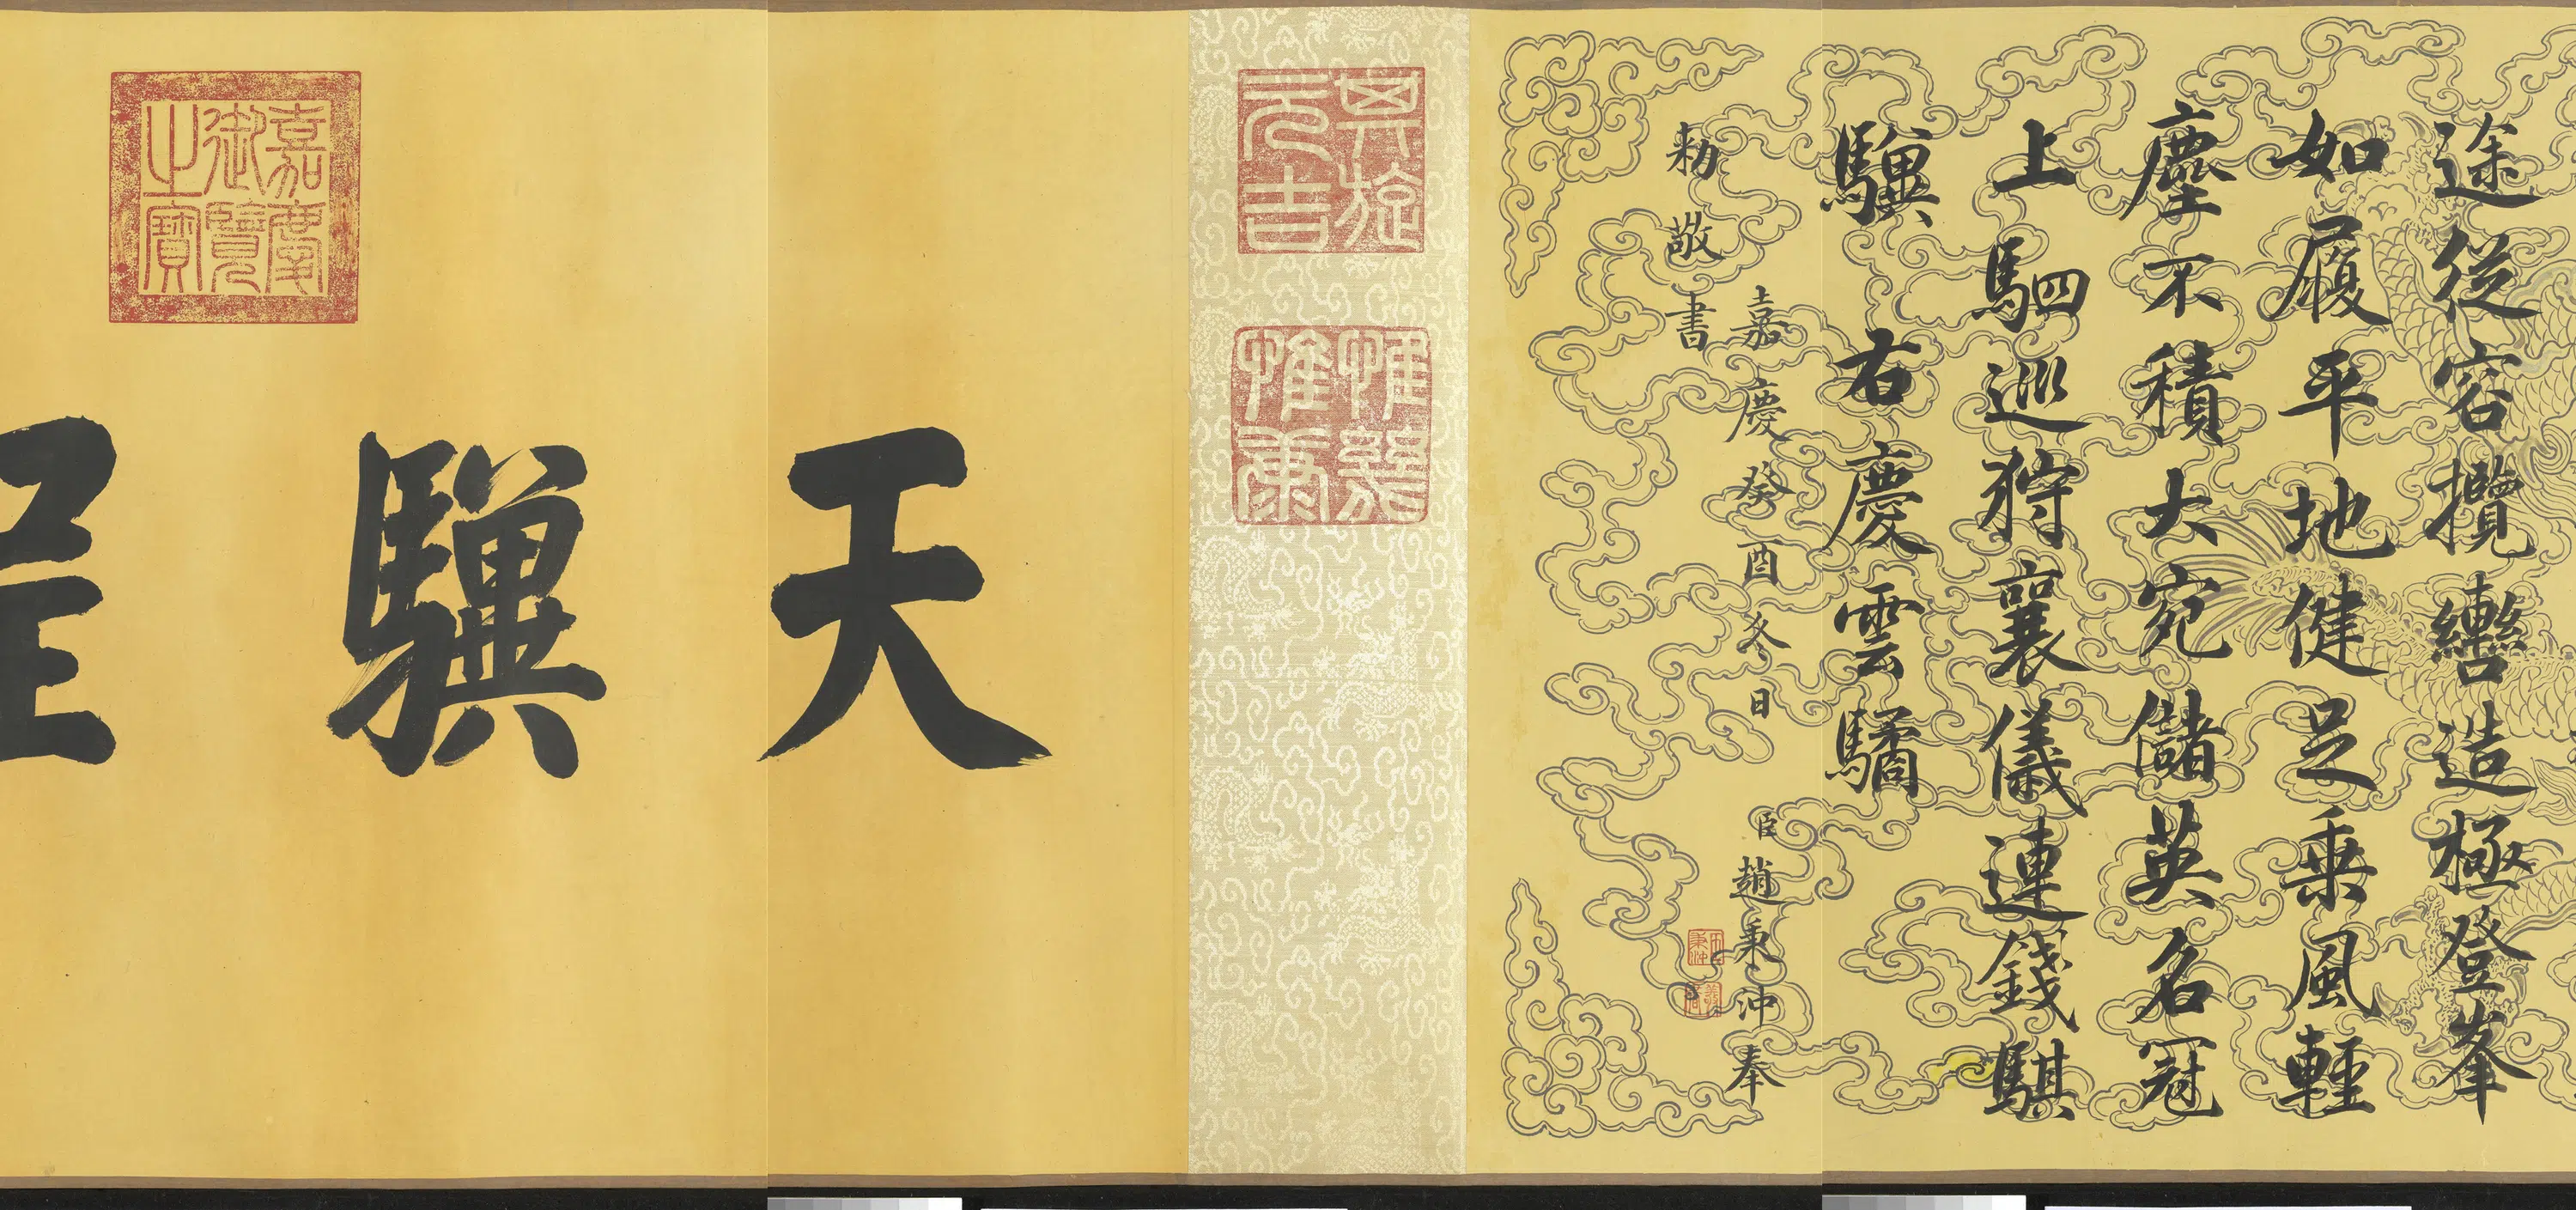 途從容攬轡造極登峯
如履平地健足乘風輕
塵不積大宛儲英名冠
上駟巡狩襄儀連錢騏
驥 右慶雲驈
嘉慶癸酉冬日 臣趙秉沖奉
勅敬書
其旋元吉
惟幾惟康
天驥呈
嘉慶御覽之寶